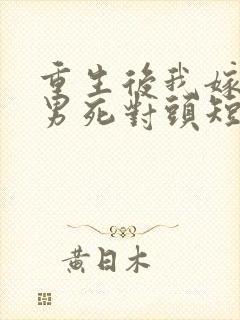 重生後我嫁
男死對頭短
黃日木